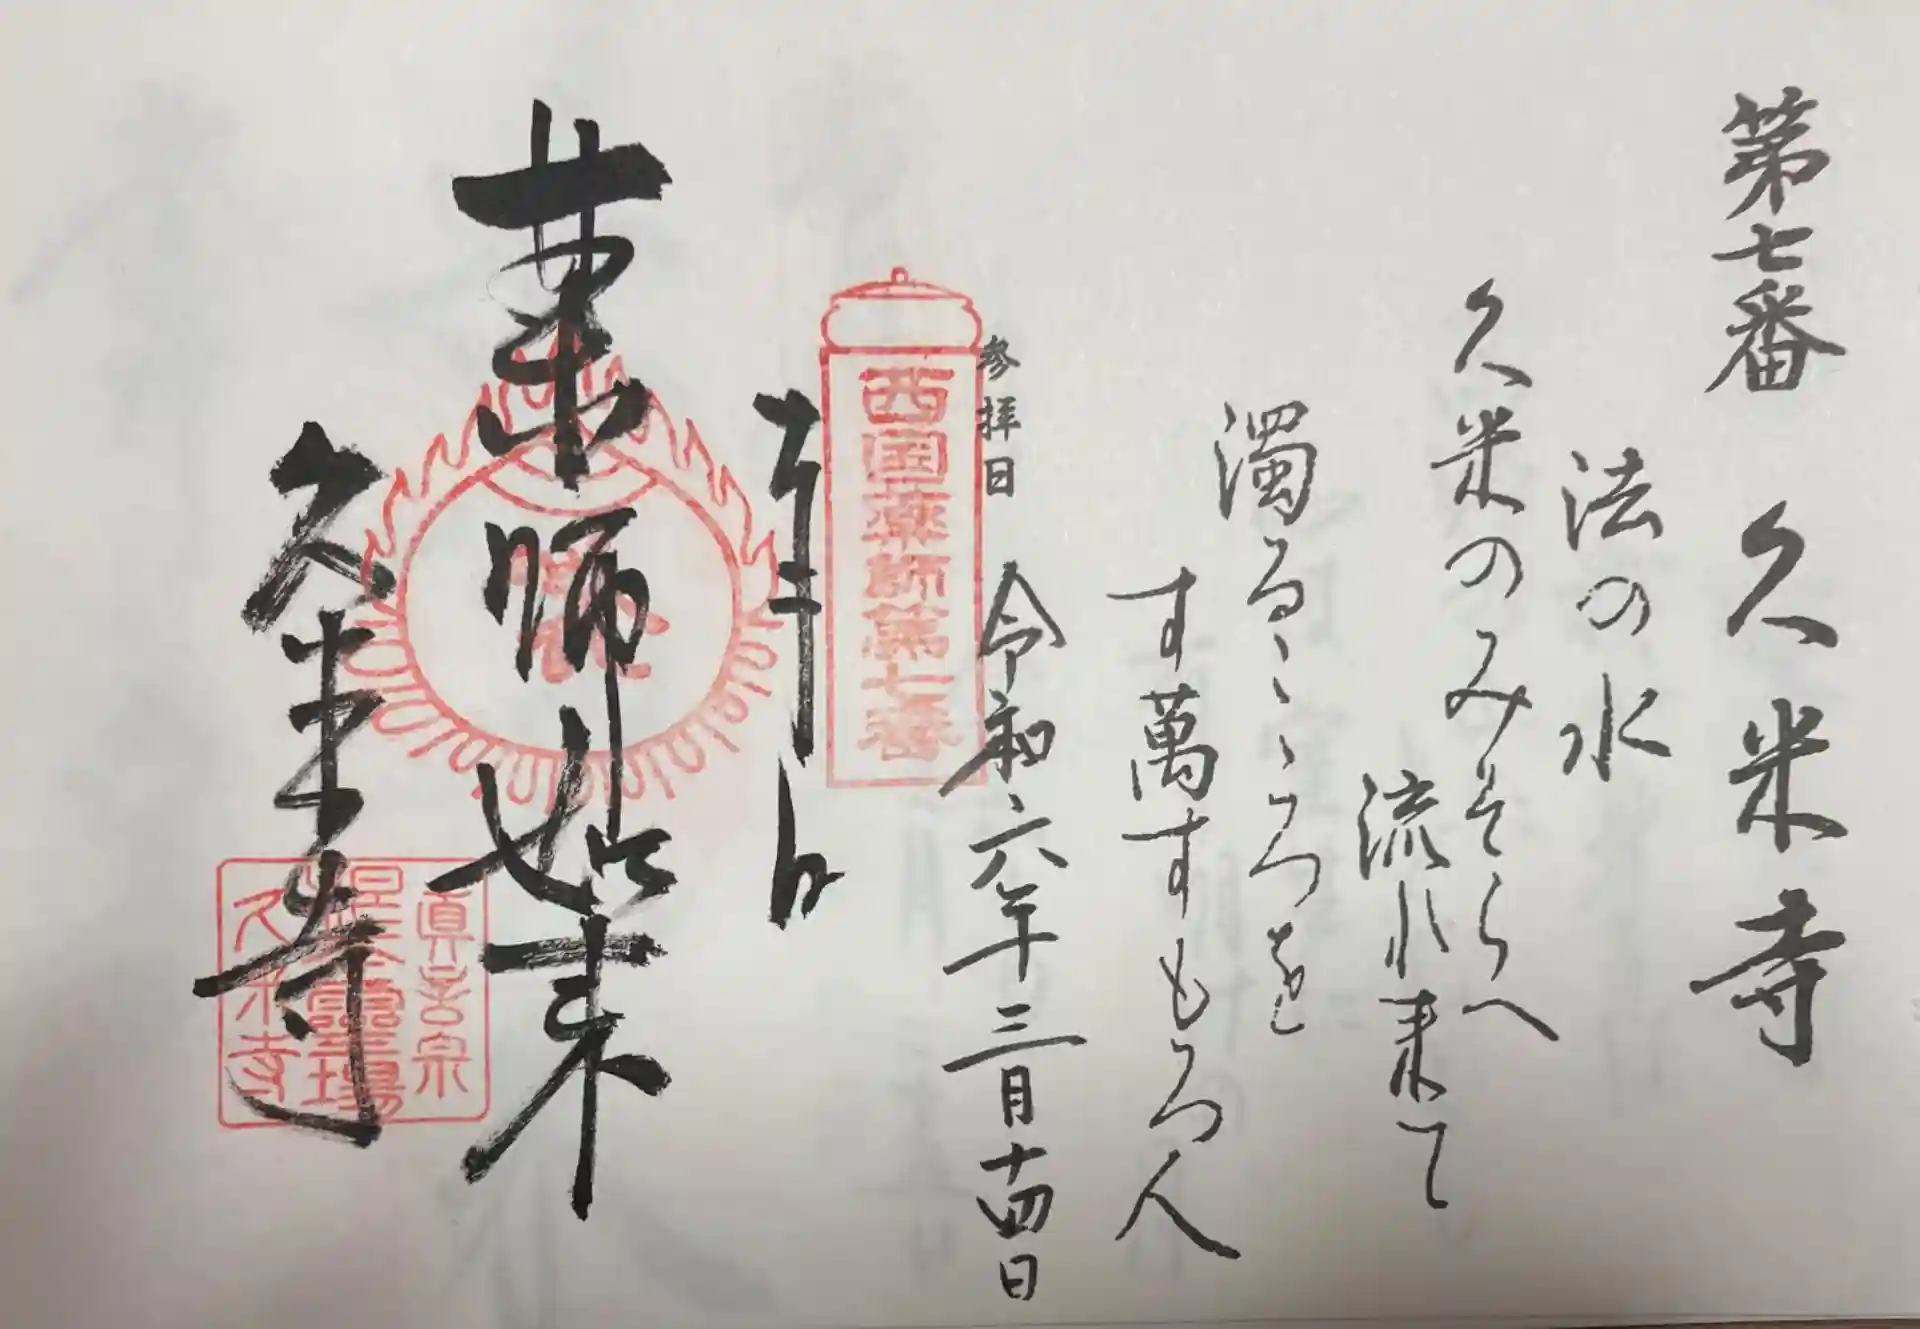 第七番 久米寺
法の水
久米のみそらへ
流れ来て
濁るゝこゝろを
すゝ萬すもろ人
参拝日 令和六年三月十四日
西国薬師第七番
奉拝
薬師如来
久米寺
眞言宗
霊場
久米寺